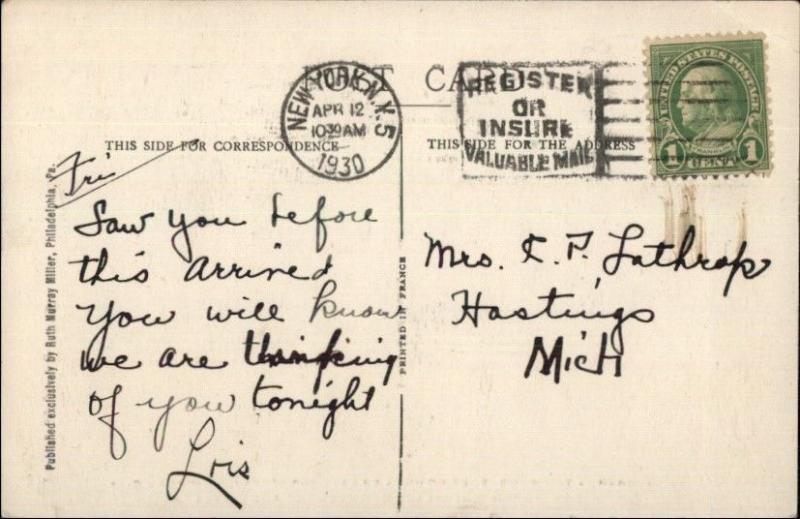 POST CARD
NEW YORK, N.Y. 5
APR 12
10:30 AM
1930
REGISTER
OR
INSURE
VALUABLE MAIL
UNITED STATES POSTAGE
1 CENT 1
THIS SIDE FOR CORRESPONDENCE
THIS SIDE FOR THE ADDRESS
Fri
Saw you before
this arrived
You will know
we are thinking
of you tonight
Lois
Mrs. F. Lathrop
Hastings
Mich
Published exclusively by Ruth Murray Miller, Philadelphia, Pa.
PRINTED IN FRANCE